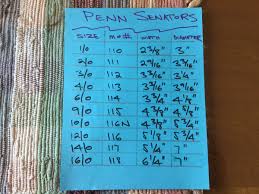 PENN SENATORS
SIZE MO# WIDTH DIAMETER
1/0 110 2 3/8" 3"
2/0 111 2 9/16" 3 3/16"
3/0 112 3 3/16"
4/0 113 3 3/16"
6/0 114 3 3/4" 4 1/8"
9/0 115 4 5/8"
10/0 116N 4 3/8" 5 3/4"
12/0 116 5 1/8" 5 3/4"
14/0 117 5 1/4" 7"
16/0 118 6 1/4" 7"